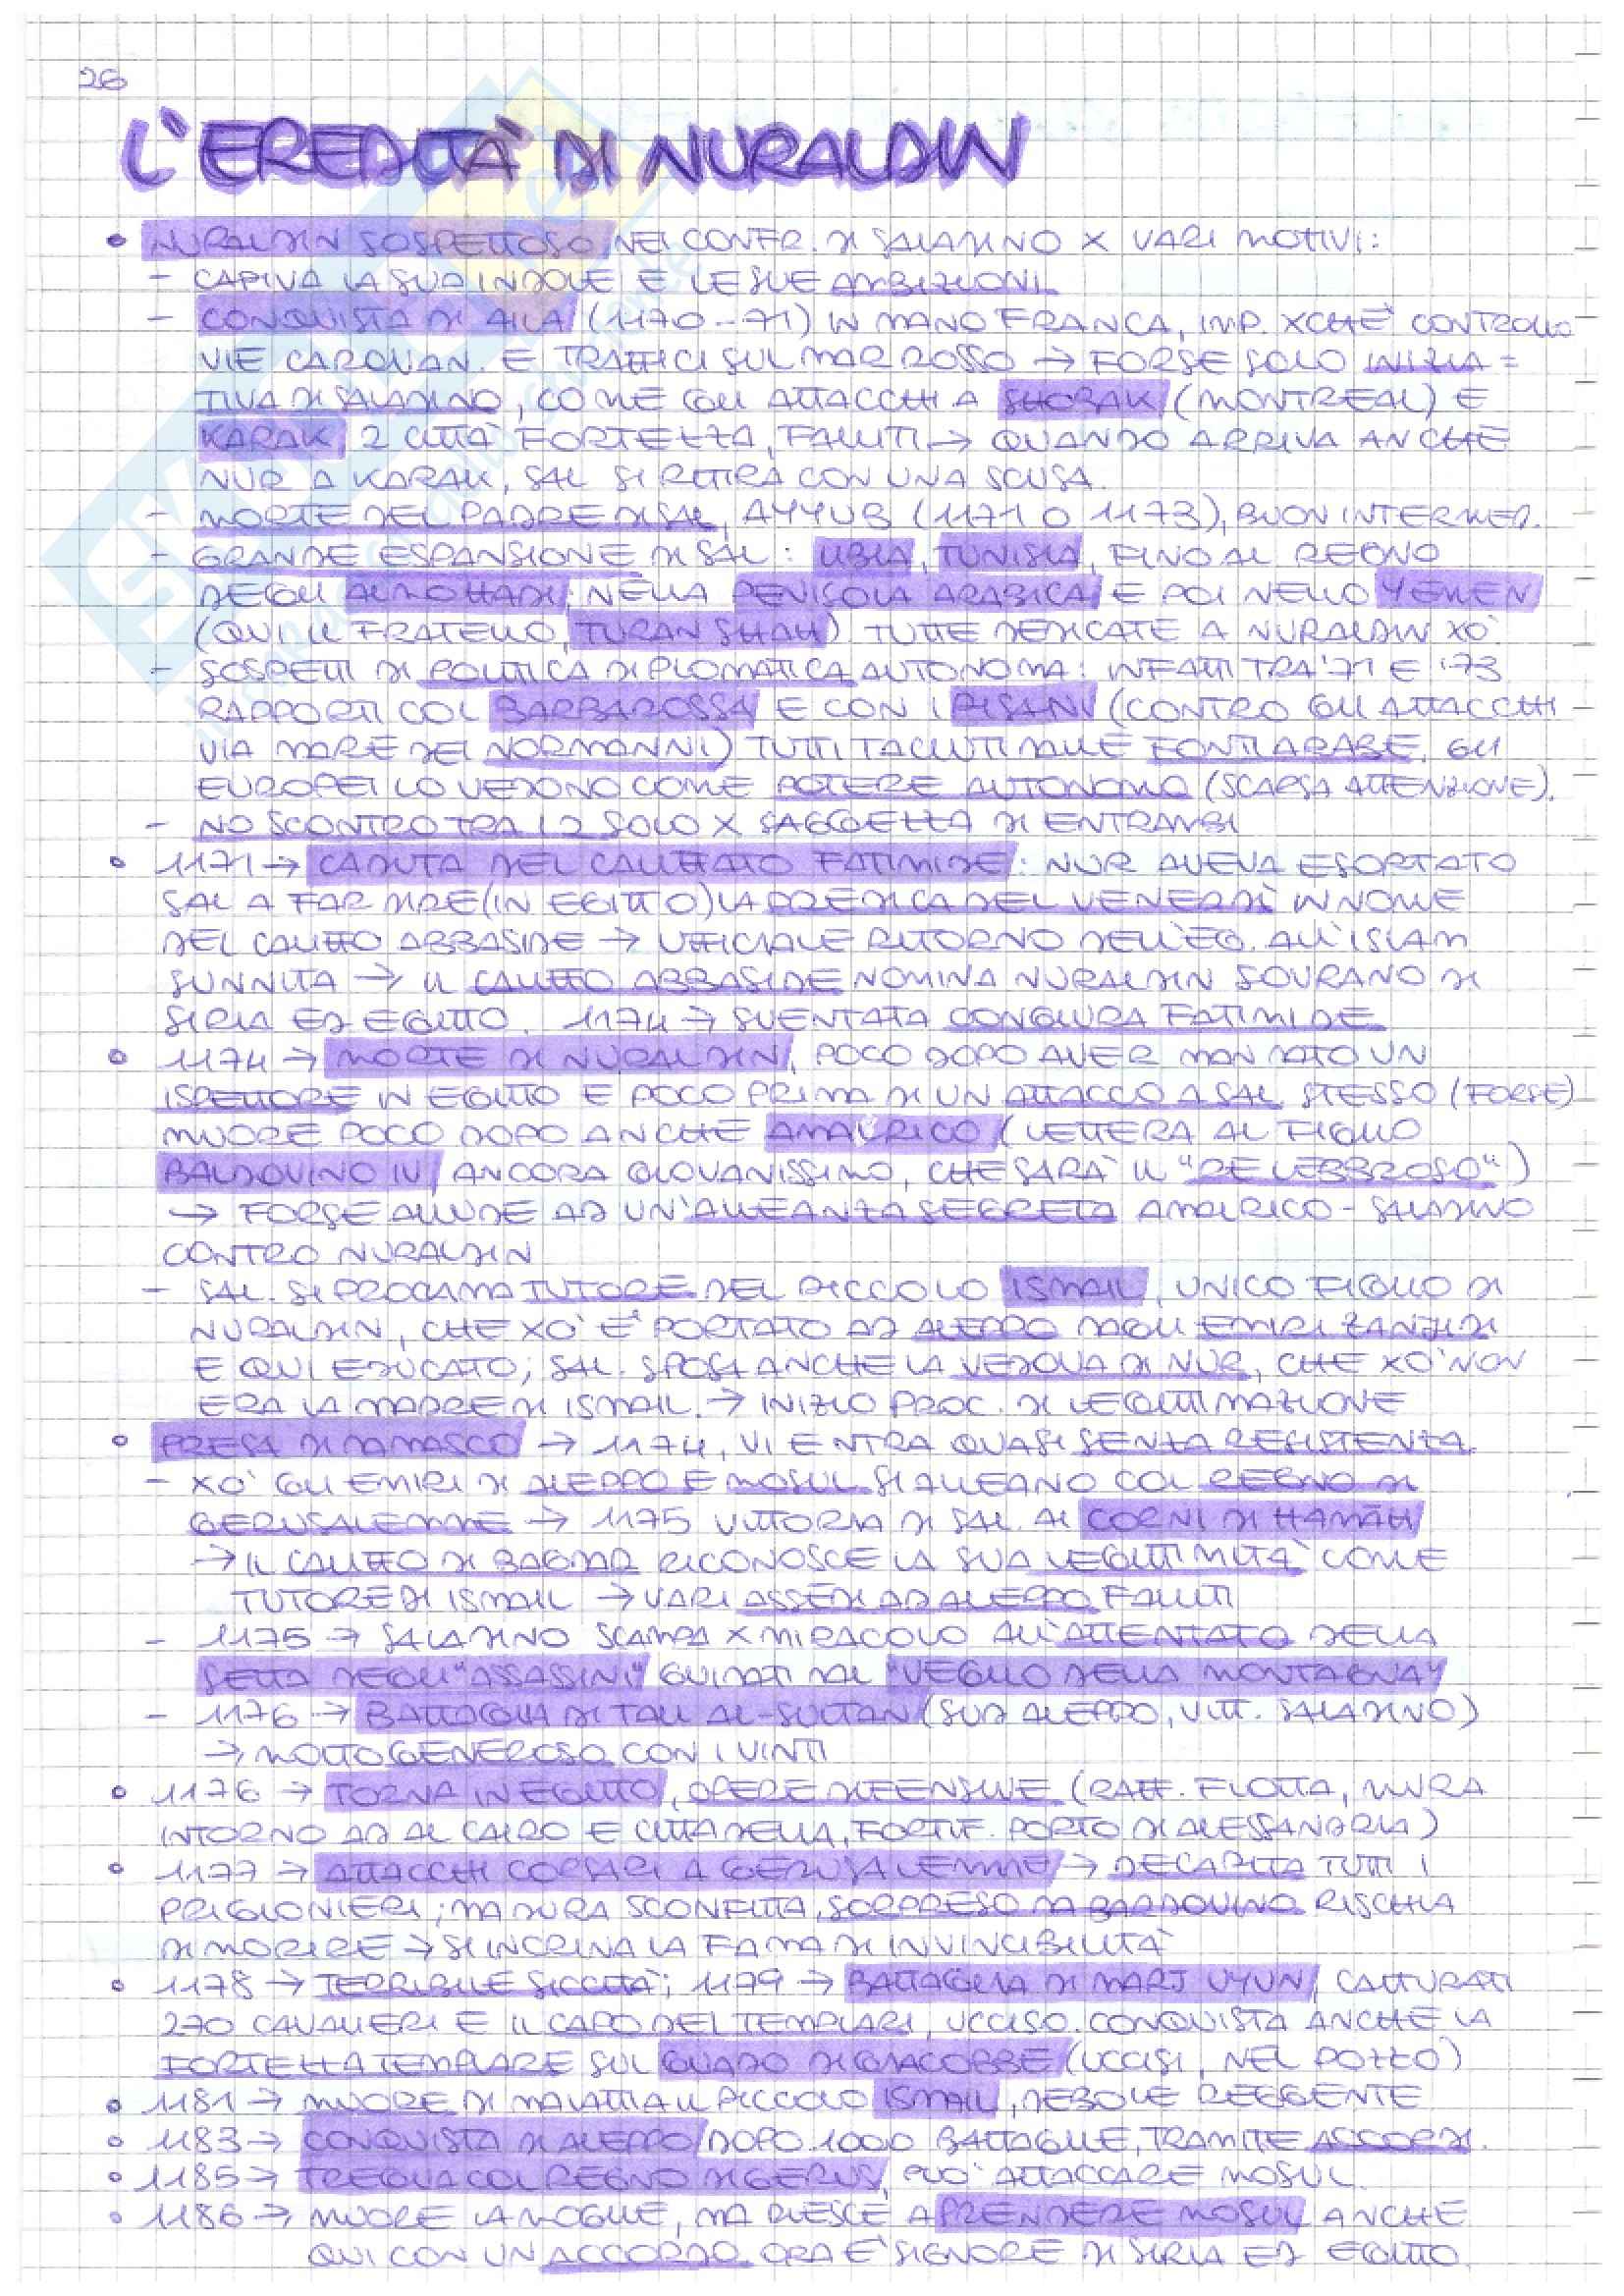 26
L'EREDITÀ DI NURALDIN
• NURALDIN SOSPETTOSO NEI CONFR. DI SALADINO X VARI MOTIVI:
– CAPIVA LA SUA INDOLE E LE SUE AMBIZIONI
– CONQUISTA DI AILA (1170-71) IN MANO FRANCA, IMP. XCHÈ CONTROLLO
VIE CAROVAN. E TRAFFICI SUL MAR ROSSO → FORSE SOLO INIZIA=
TIVA DI SALADINO, COME GLI ATTACCHI A SHOBAK (MONTREAL) E
KARAK 2 CITTÀ FORTEZZA, FALLITI → QUANDO ARRIVA ANCHE
NUR A KARAK, SAL SI RITIRA CON UNA SCUSA.
– MORTE DEL PADRE DI SAL, AYYUB (1171 O 1173), BUON INTERMED.
– GRANDE ESPANSIONE DI SAL: LIBIA, TUNISIA, FINO AL REGNO
DEGLI ALMOHADI; NELLA PENISOLA ARABICA E POI NELLO YEMEN
(QUI IL FRATELLO, TURAN SHAH) TUTTE DEDICATE A NURALDIN XÒ
– SOSPETTI DI POLITICA DIPLOMATICA AUTONOMA: INFATTI TRA '71 E '73
RAPPORTI COL BARBAROSSA E CON I PISANI (CONTRO GLI ATTACCHI
VIA MARE DEI NORMANNI) TUTTI TACIUTI DALLE FONTI ARABE, GLI
EUROPEI LO VEDONO COME POTERE AUTONOMO (SCARSA ATTENZIONE).
– NO SCONTRO TRA I 2 SOLO X SAGGEZZA DI ENTRAMBI
• 1171 → CADUTA DEL CALIFFATO FATIMIDE: NUR AVEVA ESORTATO
SAL A FAR DIRE (IN EGITTO) LA PREDICA DEL VENERDÌ IN NOME
DEL CALIFFO ABBASIDE → UFFICIALE RITORNO DELL'EG. ALL'ISLAM
SUNNITA → IL CALIFFO ABBASIDE NOMINA NURALDIN SOVRANO DI
SIRIA ED EGITTO. 1174 → SVENTATA CONGIURA FATIMIDE
• 1174 → MORTE DI NURALDIN, POCO DOPO AVER MANDATO UN
ISPETTORE IN EGITTO E POCO PRIMA DI UN ATTACCO A SAL STESSO (FORSE)
MUORE POCO DOPO ANCHE AMALRICO (LETTERA AL FIGLIO
BALDOVINO IV, ANCORA GIOVANISSIMO, CHE SARÀ IL "RE LEBBROSO")
→ FORSE ALLUDE AD UN'ALLEANZA SEGRETA AMALRICO-SALADINO
CONTRO NURALDIN
– SAL. SI PROCLAMA TUTORE DEL PICCOLO ISMAIL, UNICO FIGLIO DI
NURALDIN, CHE XÒ È PORTATO AD ALEPPO DAGLI EMIRI ZANJIDI
E QUI EDUCATO; SAL. SPOSA ANCHE LA VEDOVA DI NUR, CHE XÒ NON
ERA LA MADRE DI ISMAIL. → INIZIO PROC. DI LEGITTIMAZIONE
• PRESA DI DAMASCO → 1174, VI ENTRA QUASI SENZA RESISTENZA.
– XÒ GLI EMIRI DI ALEPPO E MOSUL SI ALLEANO COL REGNO DI
GERUSALEMME → 1175 VITTORIA DI SAL. AI CORNI DI HAMĀH
→ IL CALIFFO DI BAGDAD RICONOSCE LA SUA LEGITTIMITÀ COME
TUTORE DI ISMAIL → VARI ASSEDI AD ALEPPO FALLITI
– 1175 → SALADINO SCAMPA X MIRACOLO ALL'ATTENTATO DELLA
SETTA DEGLI "ASSASSINI" GUIDATI DAL "VEGLIO DELLA MONTAGNA"
– 1176 → BATTAGLIA DI TALL AL-SULTAN (SUD ALEPPO, VITT. SALADINO)
→ MOLTO GENEROSO CON I VINTI
• 1176 → TORNA IN EGITTO, OPERE DIFENSIVE (RAFF. FLOTTA, MURA
INTORNO AD AL CAIRO E CITTADELLA, FORTIF. PORTO DI ALESSANDRIA)
• 1177 → ATTACCHI CORSARI A GERUSALEMME → DECAPITA TUTTI I
PRIGIONIERI; MA DURA SCONFITTA, SORPRESO DA BALDOVINO RISCHIA
DI MORIRE → SI INCRINA LA FAMA DI INVINCIBILITÀ
• 1178 → TERRIBILE SICCITÀ; 1179 → BATTAGLIA DI MARJ UYUN, CATTURATI
270 CAVALIERI E IL CAPO DEI TEMPLARI, UCCISO. CONQUISTA ANCHE LA
FORTEZZA TEMPLARE SUL GUADO DI GIACOBBE (UCCISI, NEL POZZO)
• 1181 → MUORE DI MALATTIA IL PICCOLO ISMAIL, DEBOLE REGGENTE
• 1183 → CONQUISTA DI ALEPPO DOPO 1000 BATTAGLIE, TRAMITE ACCORDI.
• 1185 → TREGUA COL REGNO DI GERUS, PUÒ ATTACCARE MOSUL.
• 1186 → MUORE LA MOGLIE, MA RIESCE A PRENDERE MOSUL ANCHE
QUI CON UN ACCORDO. ORA È SIGNORE DI SIRIA ED EGITTO.